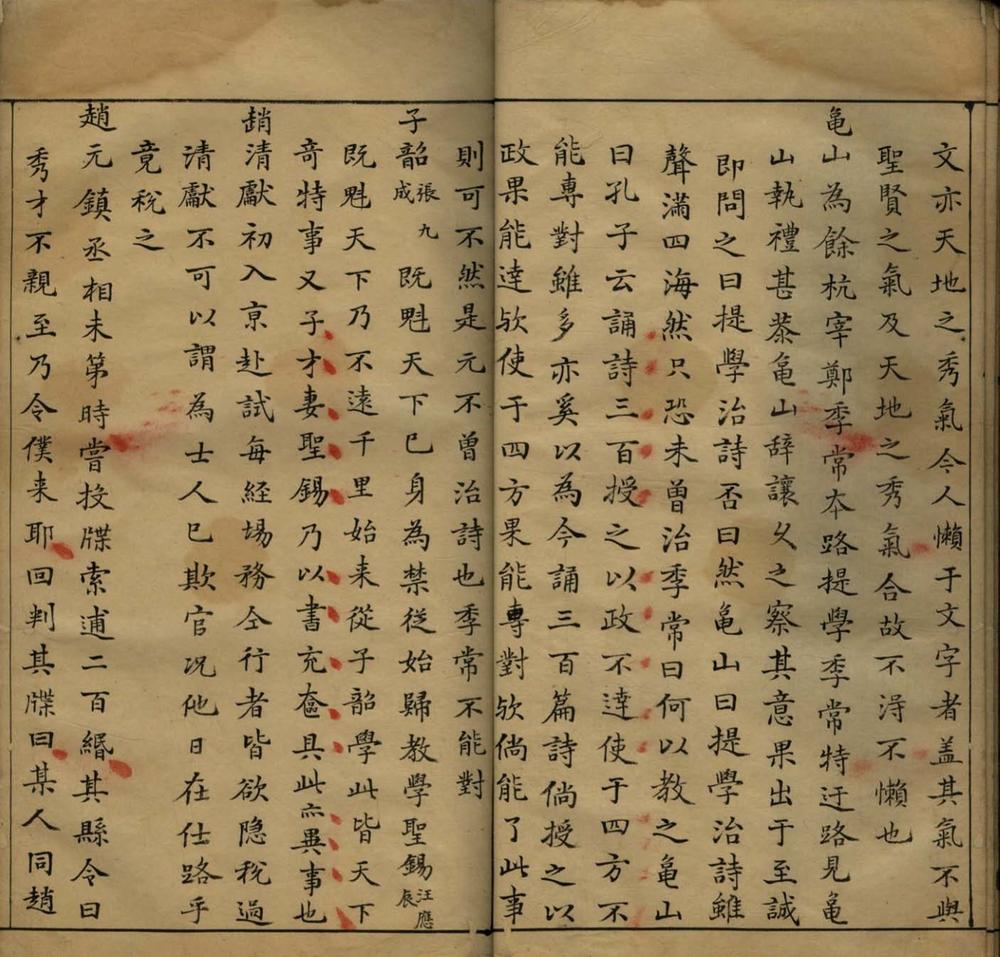 文亦天地之秀氣今人懶于文字者盖其氣不與
聖賢之氣及天地之秀氣合故不淂不懶也
亀山為餘杭宰鄭季常夲路提學季常特迂路見亀
山執禮甚恭亀山辞讓久之察其意果出于至誠
即問之曰提學治詩否曰然亀山曰提學治詩雖
聲滿四海然只恐未曽治季常曰何以教之亀山
曰孔子云誦詩三百授之以政不達使于四方不
能專對雖多亦奚以為今誦三百篇詩倘授之以
政果能逹欤使于四方果能專對欤倘能了此事
則可不然是元不曽治詩也季常不能對
子韶張九成既魁天下已身為禁從始歸教學聖錫汪應辰
既魁天下乃不遠千里始来從子韶學此皆天下
竒特事又子才妻聖錫乃以書充奩具此亦異事也
趙清獻初入京赴試每経場務仝行者皆欲隐稅過
清獻不可以謂為士人已欺官况他日在仕路乎
竟稅之
趙元鎮丞相未第時嘗投牒索逋二百緡其縣令曰
秀才不親至乃令僕来耶回判其牒曰某人同趙